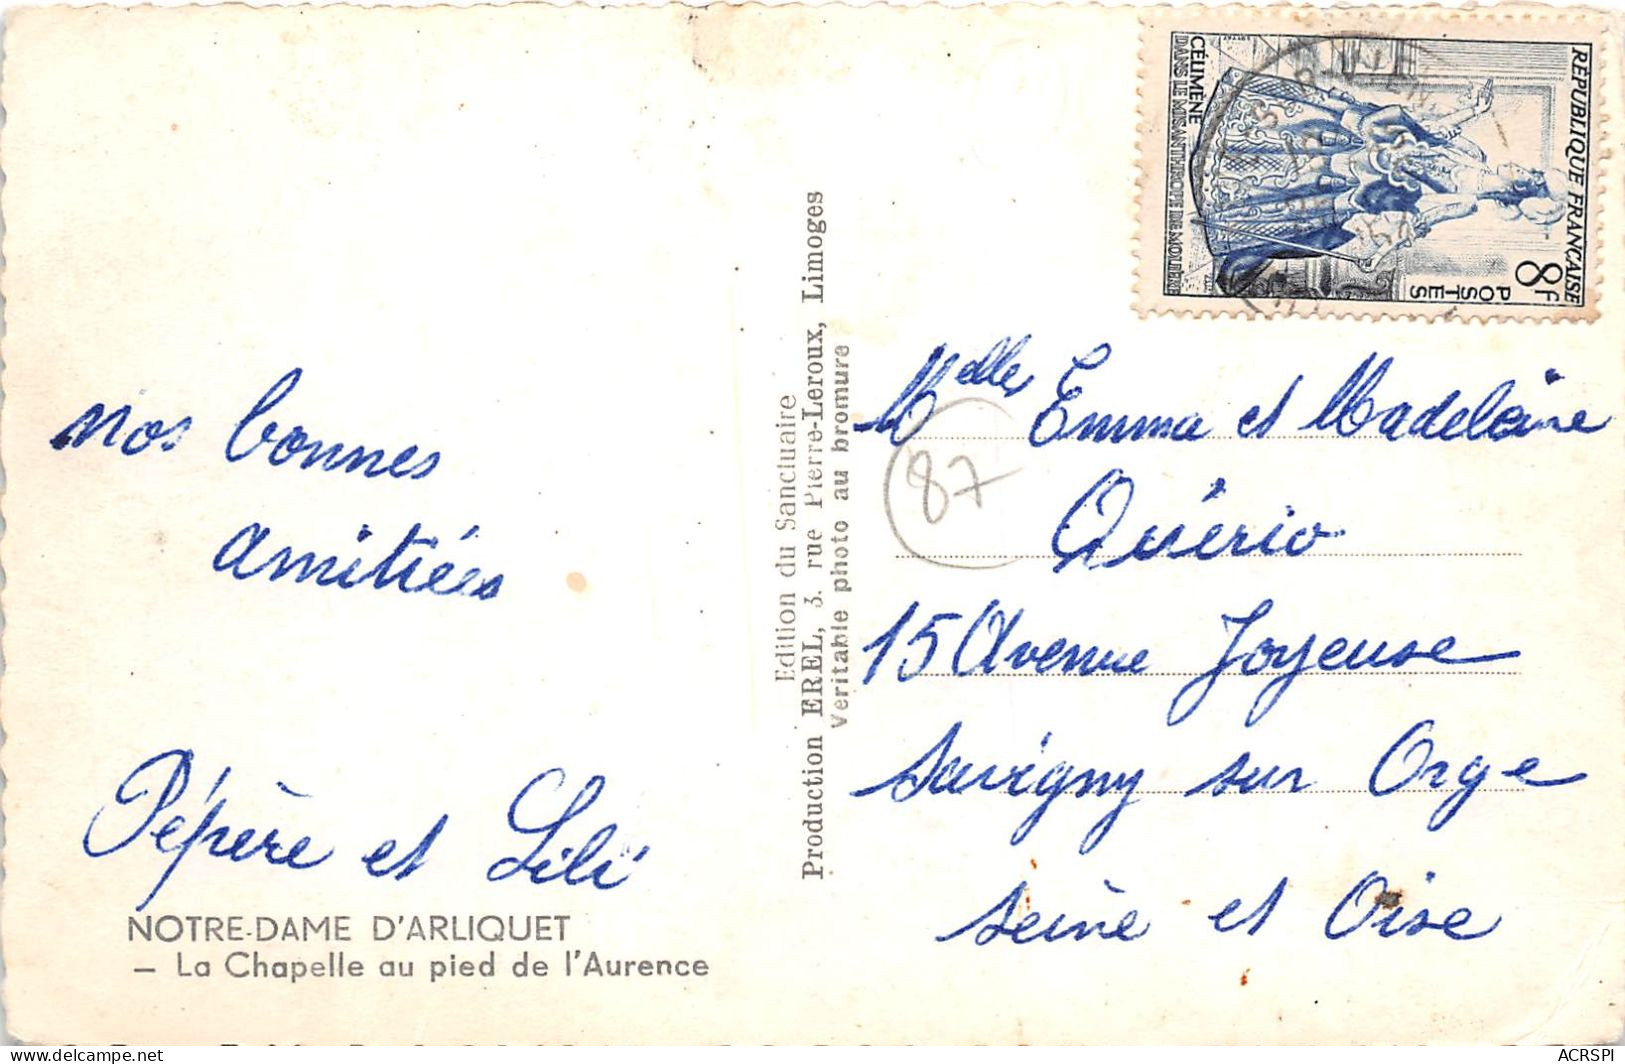 nos bonnes
amitiées
Pépère et Lili
NOTRE-DAME D'ARLIQUET
— La Chapelle au pied de l'Aurence
Edition du Sanctuaire
Production EREL, 3. rue Pierre-Leroux, Limoges
Veritable photo au bromure
RÉPUBLIQUE FRANÇAISE
8F
POSTES
CÉLIMÈNE
DANS LE MISANTHROPE DE MOLIÈRE
Melles Emma et Madeleine
87
Quério
15 Avenue Joyeuse
Savigny sur Orge
Seine et Oise
ACRSPI